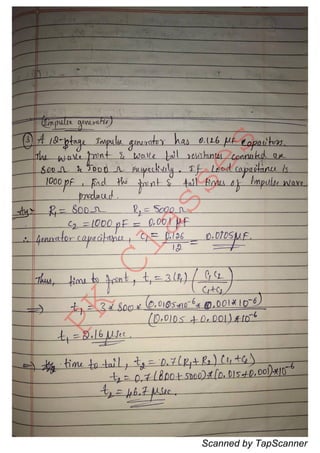 (Impulse generator)
③ A 12-stage Impulse generator has 0.126 μF Capacitors.
The wave front & wave tail resistances connected are
800 Ω & 5000 Ω respectively. If Load capacitance is
1000 pF, find the front & tail times of Impulse wave
produced.
R₁ = 800 Ω R₂ = 5000 Ω
C₂ = 1000 pF = 0.001 μF
∴ Generator capacitance, C₁ = 0.126/12 = 0.0105 μF.
Thus, time to front, t₁ = 3(R₁) (C₁C₂/C₁+C₂)
⇒ t₁ = 3 × 800 × (0.0105×10⁻⁶ × 0.001×10⁻⁶)/(0.0105 + 0.001)×10⁻⁶
t₁ = 2.16 μsec.
⇒ time to tail, t₂ = 0.7 (R₁+R₂) (C₁+C₂)
t₂ = 0.7 (800+5000)×(0.015+0.001)×10⁻⁶
t₂ = 46.7 μsec.
PK Classes
Scanned by TapScanner